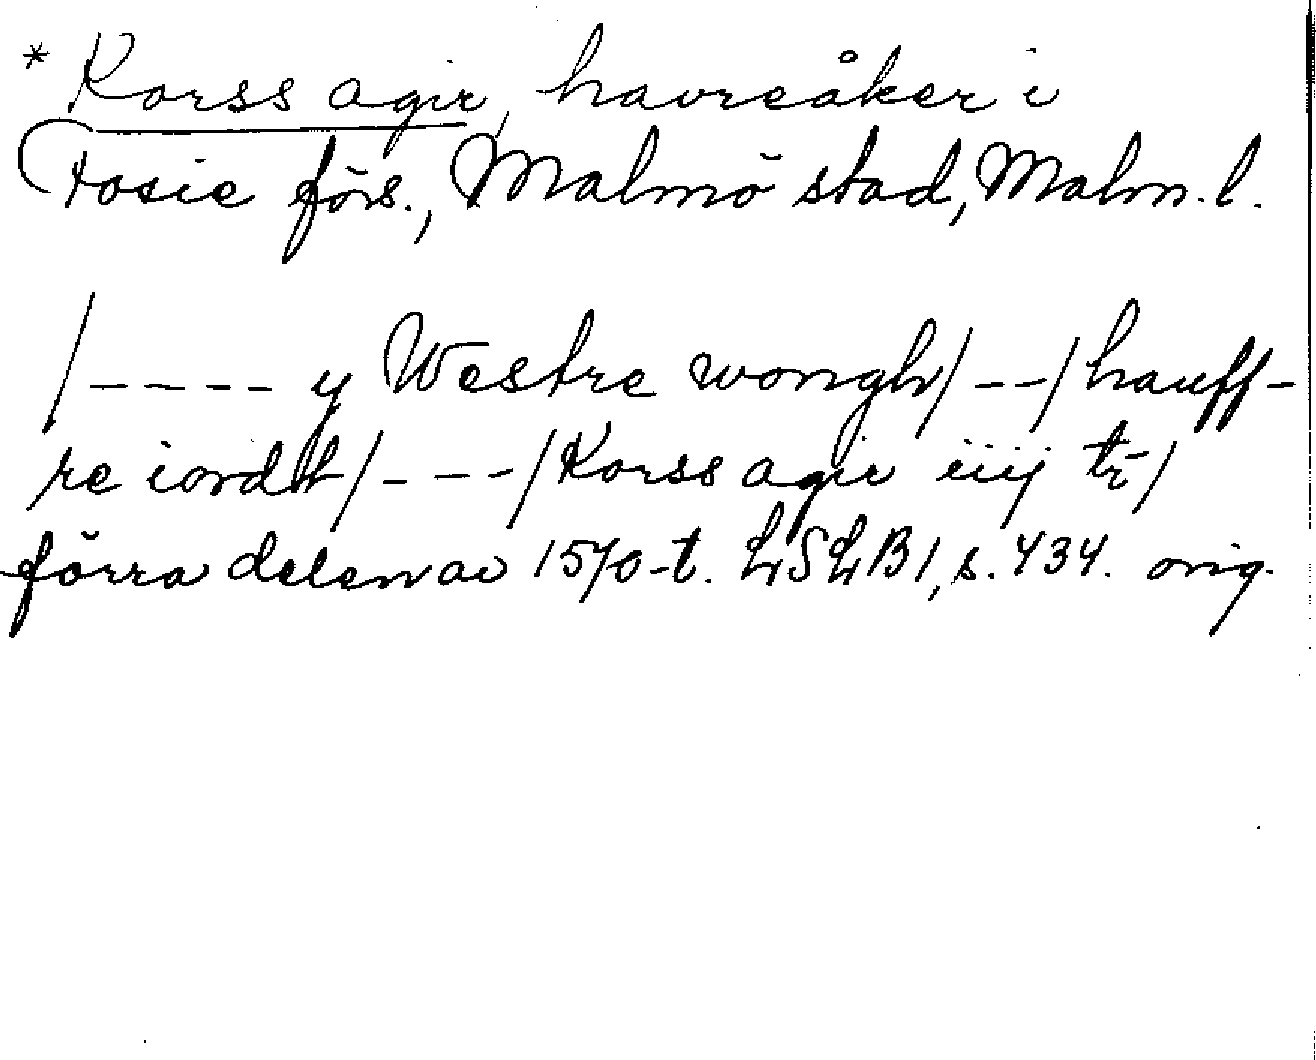 * Korss agir, havreåker i
Fosie förs., Malmö stad, Malm. l.
/---- y Westre wongh/--/hauff-
re iordt/---/Korss agir iiij tr̄/
förra delen av 1570-t. LSLB1, s. 434. orig.